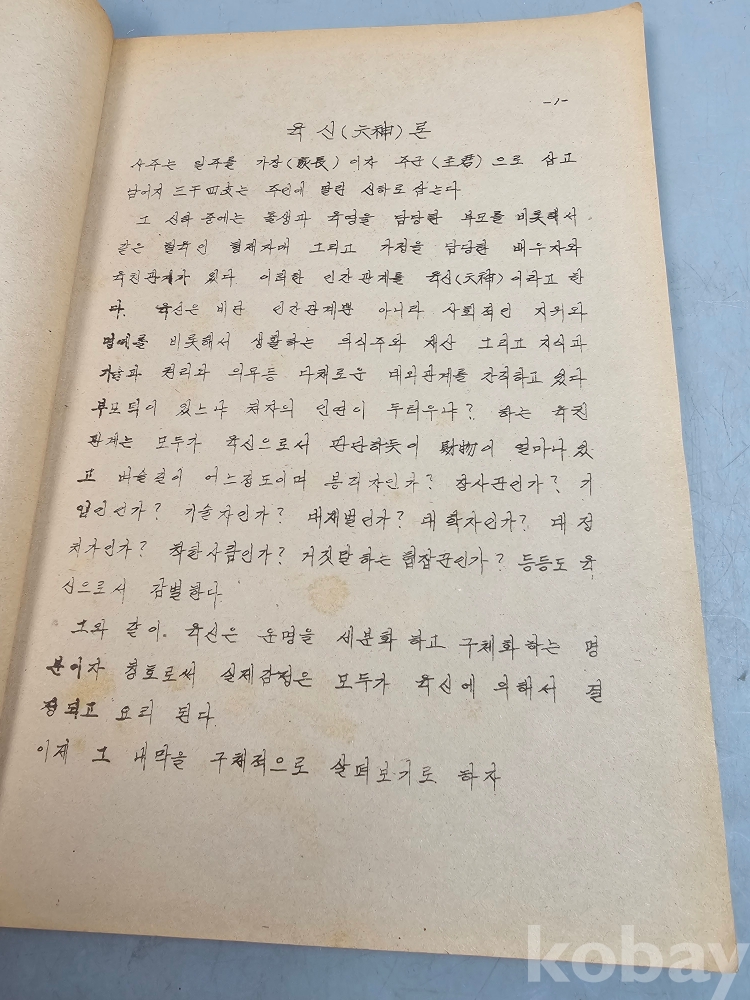 -1-
육 신(六神) 론
사주는 일주를 가장(家長) 이자 주군(主君) 으로 삼고
남어지 三干四支는 주인에 딸린 신하로 삼는다
그 신하 중에는 출생과 육영을 담당한 부모를 비롯해서
같은 혈육인 형제자매 그리고 가정을 담당한 배우자와
육친관계가 있다 이러한 인간관계를 육신(六神)이라고 한
다. 육신은 비단 인간관계뿐 아니라 사회적인 지위와
명예를 비롯해서 생활하는 의식주와 재산 그리고 지식과
기술과 권리과 의무등 다채로운 대외관계를 간직하고 있다
부모덕이 있느냐 처자의 인연이 두터우냐? 하는 육친
관계는 모두가 육신으로서 판단하듯이 財物이 얼마나 있
고 벼슬길이 어느정도이며 봉급자인가? 장사꾼인가? 기
업인인가? 기술자인가? 대재벌인가? 대 학자인가? 대 정
치가인가? 착한사람인가? 거짓말하는 협잡꾼인가? 등등도 육
신으로서 감별한다
그와 같이. 육신은 운명을 세분화 하고 구체화하는 명
분이자 칭호로써 실제감정은 모두가 육신에 의해서 결
정되고 요리 된다
이제 그 내막을 구체적으로 살펴보기로 하자
kobay